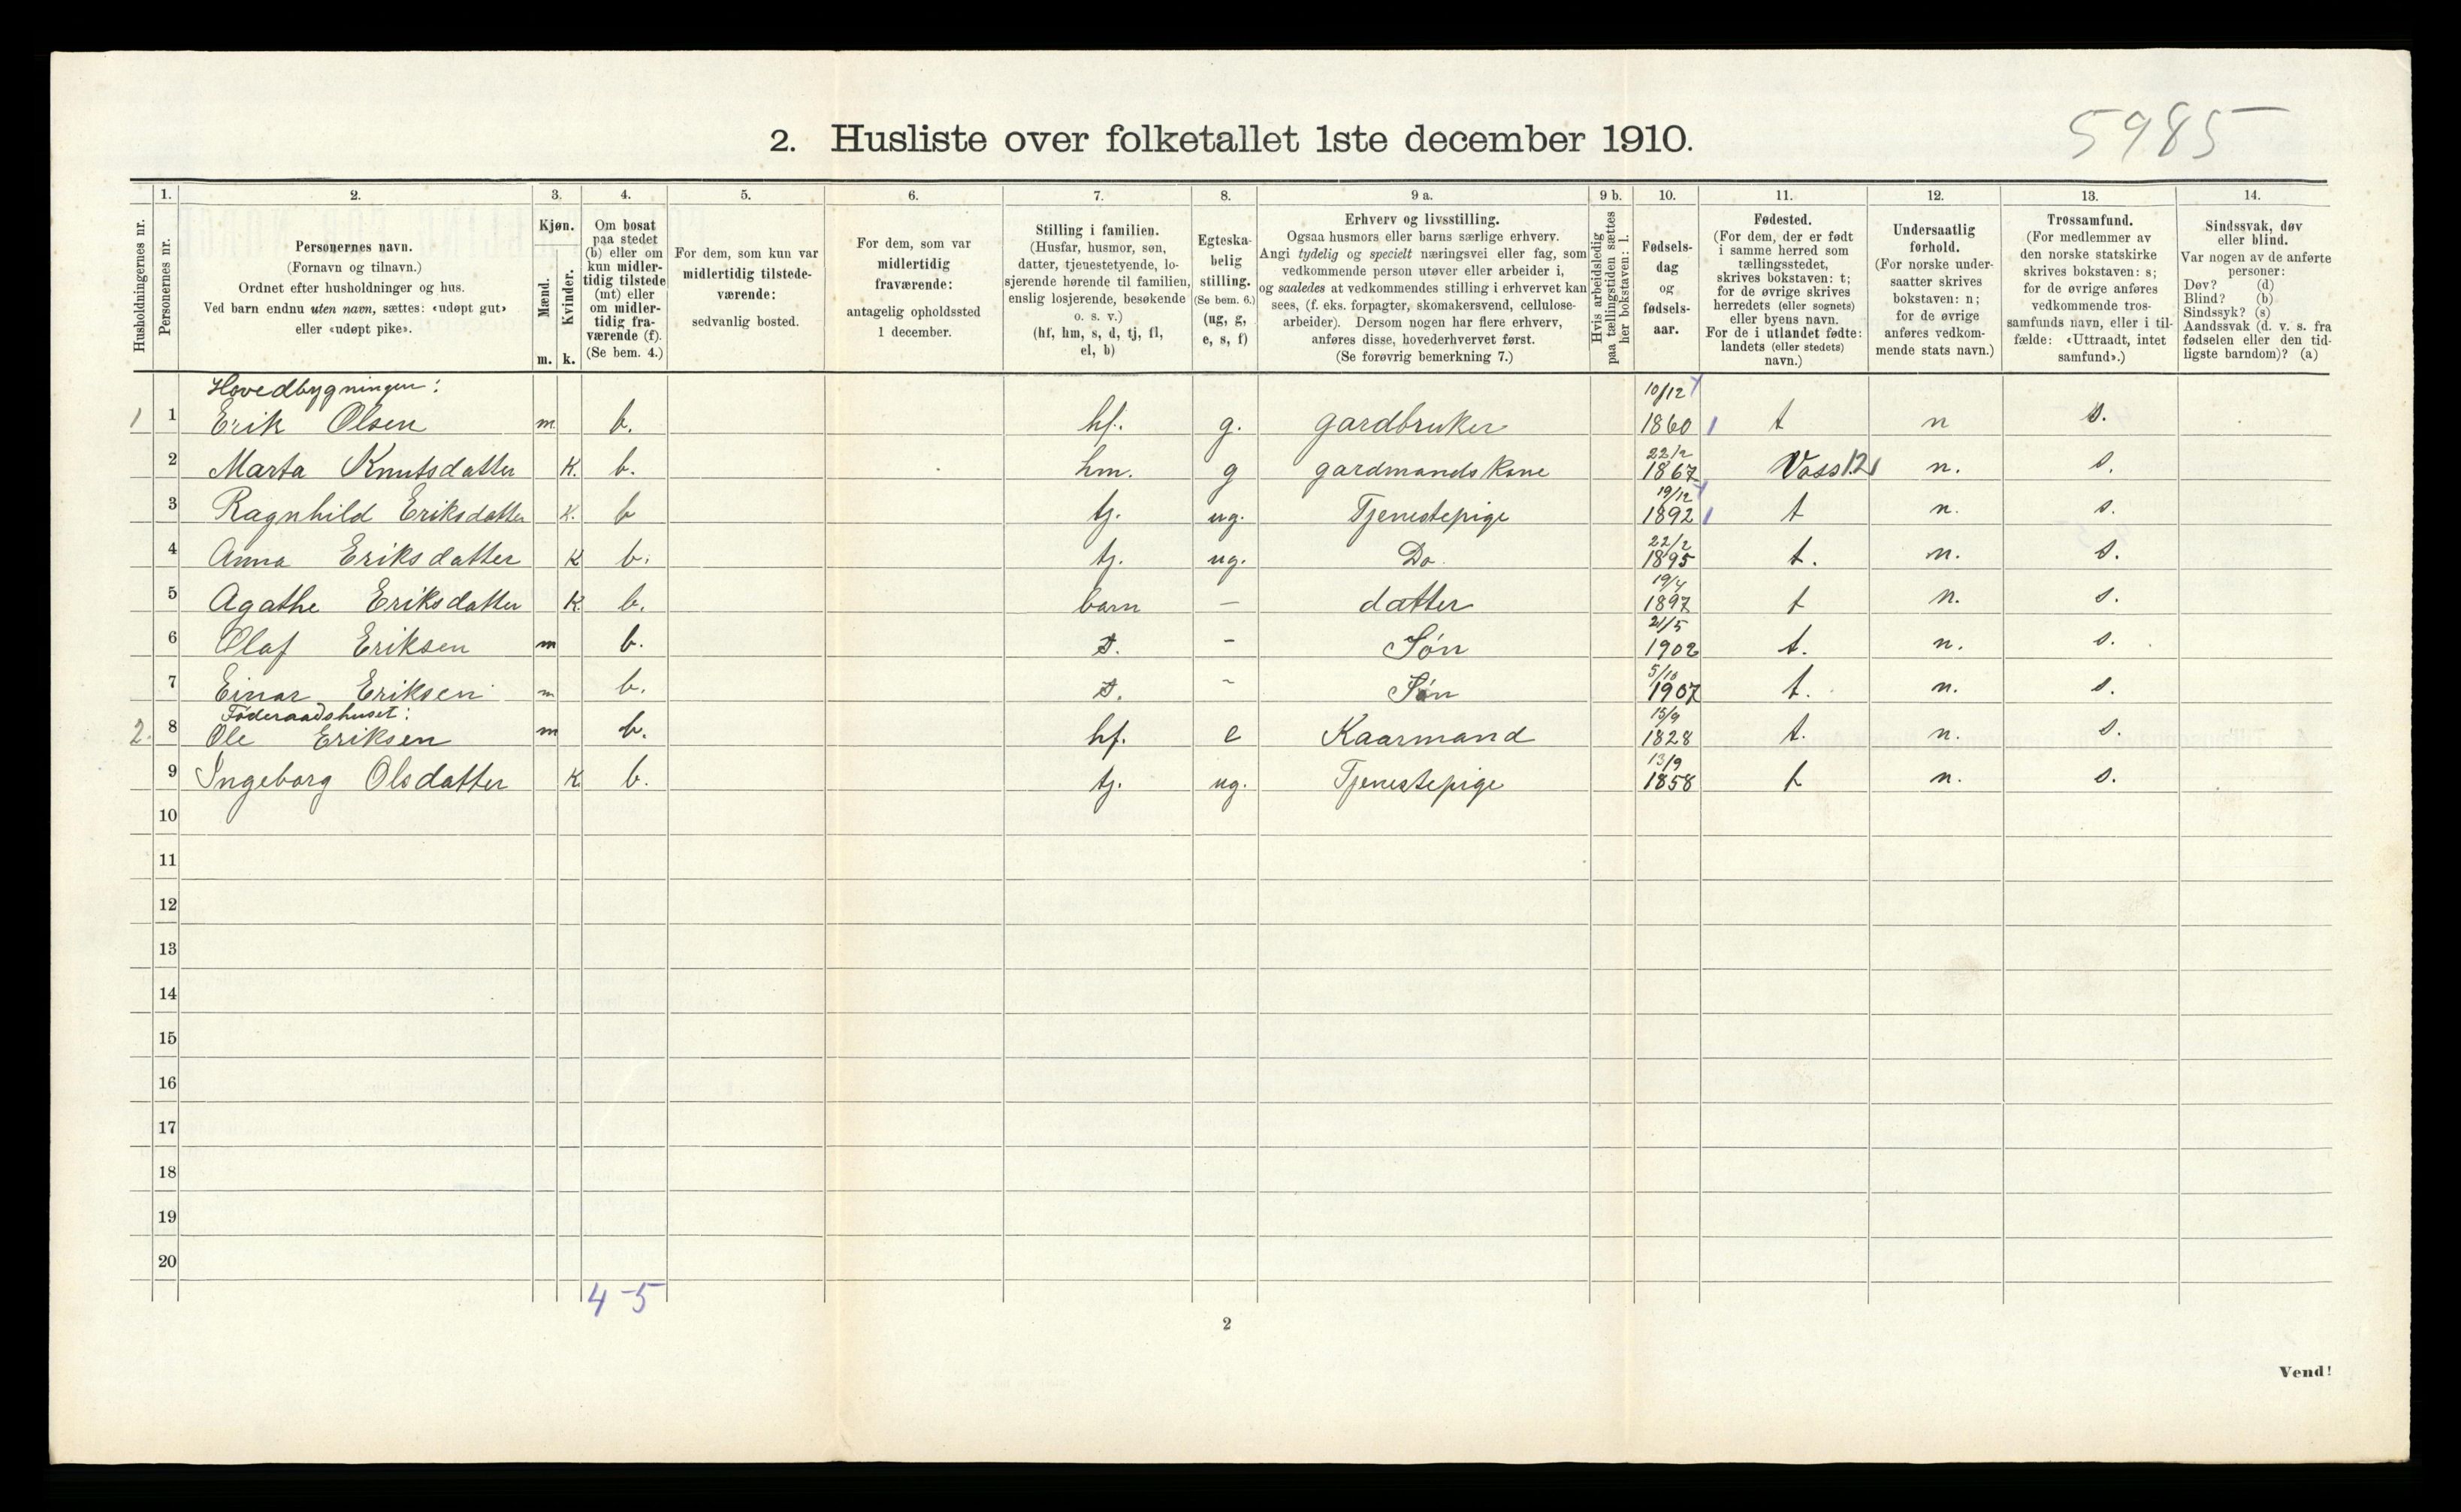 5985
2. Husliste over folketallet 1ste december 1910.
Husholdningernes nr.
1.
Personernes nr.
2.
Personernes navn.
(Fornavn og tilnavn.)
Ordnet efter husholdninger og hus.
Ved barn endnu uten navn, sættes: «udøpt gut»
eller «udøpt pike».
3.
Kjøn.
Mænd.
Kvinder.
m. k.
4.
Om bosat
paa stedet
(b) eller om
kun midler-
tidig tilstede
(mt) eller
om midler-
tidig fra-
værende (f).
(Se bem. 4.)
5.
For dem, som kun var
midlertidig tilstede-
værende:
sedvanlig bosted.
6.
For dem, som var
midlertidig
fraværende:
antagelig opholdssted
1 december.
7.
Stilling i familien.
(Husfar, husmor, søn,
datter, tjenestetyende, lo-
sjerende hørende til familien,
enslig losjerende, besøkende
o. s. v.)
(hf, hm, s, d, tj, fl,
el, b)
8.
Egteska-
belig
stilling.
(Se bem. 6.)
(ug, g,
e, s, f)
9 a.
Erhverv og livsstilling.
Ogsaa husmors eller barns særlige erhverv.
Angi tydelig og specielt næringsvei eller fag, som
vedkommende person utøver eller arbeider i,
og saaledes at vedkommendes stilling i erhvervet kan
sees, (f. eks. forpagter, skomakersvend, cellulose-
arbeider). Dersom nogen har flere erhverv,
anføres disse, hovederhvervet først.
(Se forøvrig bemerkning 7.)
9 b.
Hvis arbeidsledig
paa tællingstiden sættes
her bokstaven: l.
10.
Fødsels-
dag
og
fødsels-
aar.
11.
Fødested.
(For dem, der er født
i samme herred som
tællingsstedet,
skrives bokstaven: t;
for de øvrige skrives
herredets (eller sognets)
eller byens navn.
For de i utlandet fødte:
landets (eller stedets)
navn.)
12.
Undersaatlig
forhold.
(For norske under-
saatter skrives
bokstaven: n;
for de øvrige
anføres vedkom-
mende stats navn.)
13.
Trossamfund.
(For medlemmer av
den norske statskirke
skrives bokstaven: s;
for de øvrige anføres
vedkommende tros-
samfunds navn, eller i til-
fælde: «Uttraadt, intet
samfund».)
14.
Sindssvak, døv
eller blind.
Var nogen av de anførte
personer:
Døv? (d)
Blind? (b)
Sindssyk? (s)
Aandssvak (d. v. s. fra
fødselen eller den tid-
ligste barndom)? (a)
Hovedbygningen: 10/12
1 1 Erik Olsen m b. hf. g. gardbruker 1860 t n s.
22/2
2 Marta Knutsdatter K. b. hm. g gardmands kone 1867 Voss 12 n. s.
19/12
3 Ragnhild Eriksdatter K. b tj. ug. Tjenestepige 1892 t n. s.
22/2
4 Anna Eriksdatter K b. tj. ug. Do. 1895 t. n. s.
19/4
5 Agathe Eriksdatter K. b. barn — datter 1897 t n. s.
21/5
6 Olaf Eriksen m b. s. - Søn 1902 t. n. s.
5/10
7 Einar Eriksen m b. s. - Søn 1907 t. n. s.
Föderaadshuset: 15/9
2. 8 Ole Eriksen m b. hf. e Kaarmand 1828 t. n. s.
13/9
9 Ingeborg Olsdatter K. b. tj. ug. Tjenestepige 1858 t n. s.
10
11
12
13
14
15
16
17
18
19
20
4-5
2
Vend!